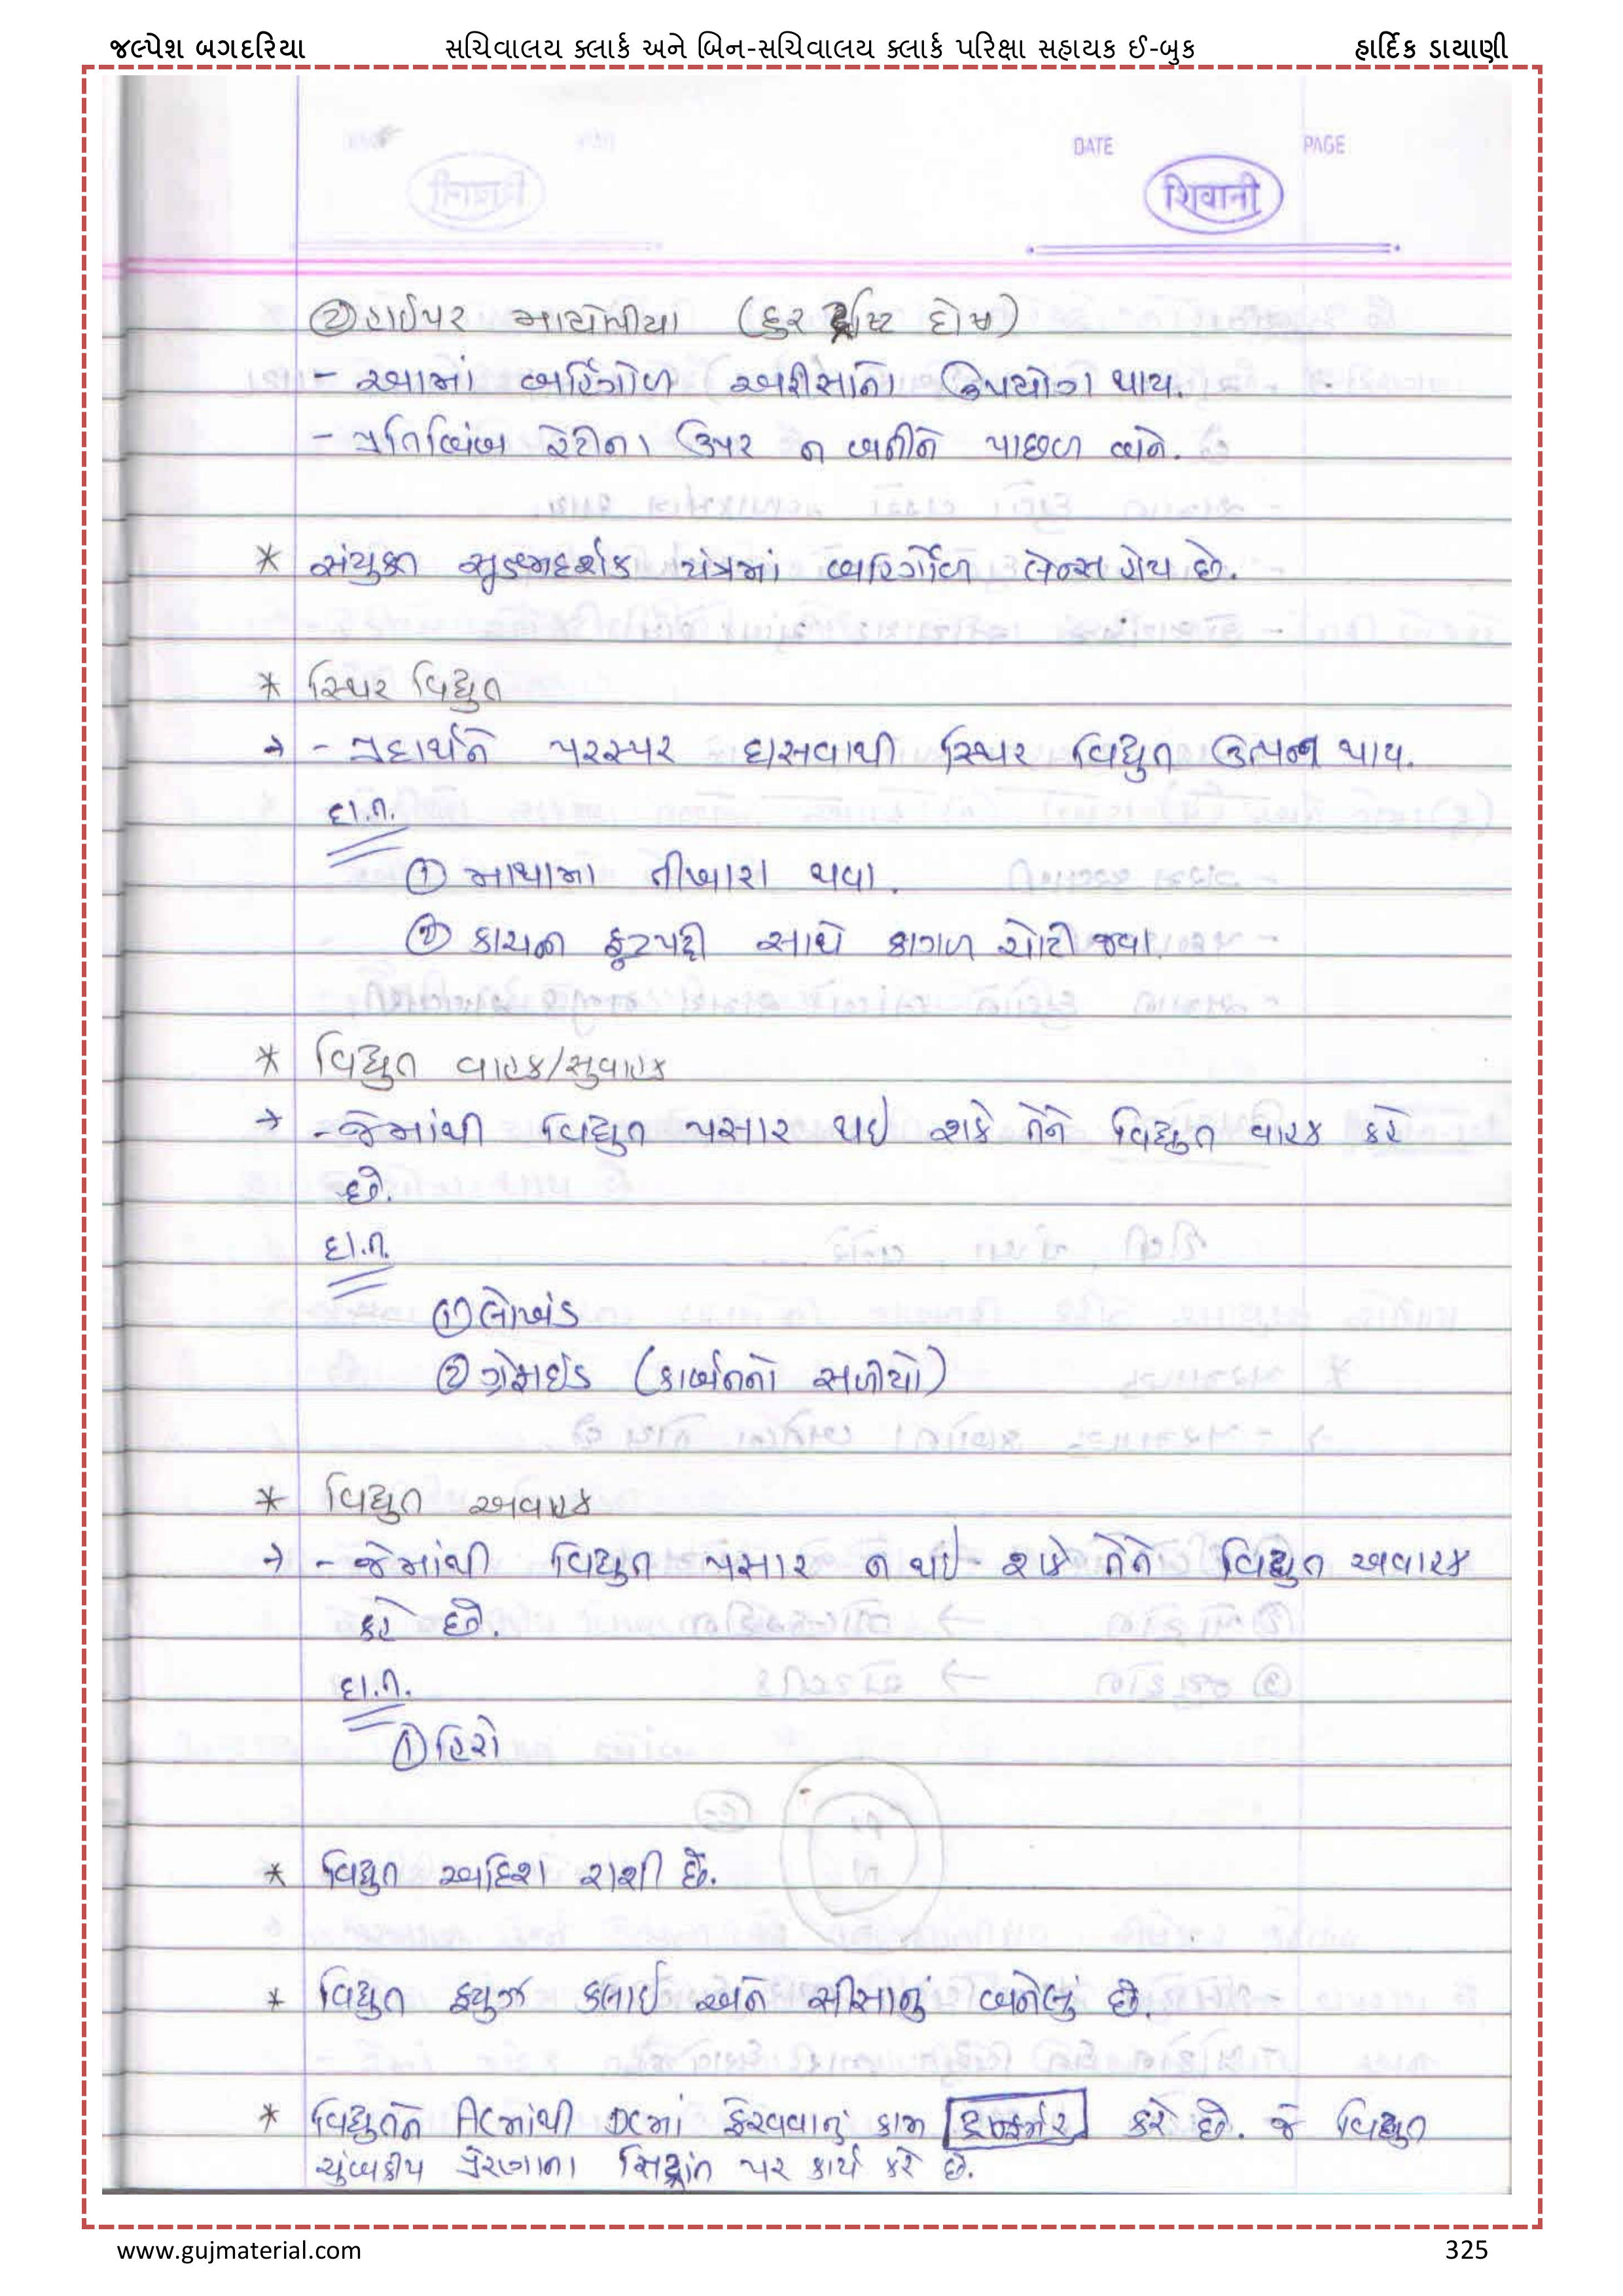 જલ્પેશ બગદરિયા સચિવાલય ક્લાર્ક અને બિન-સચિવાલય ક્લાર્ક પરિક્ષા સહાયક ઈ-બુક હાર્દિક ડાયાણી
DATE PAGE
शिवानी
② હાઈપર માયોપીયા (દુર દ્રષ્ટિ દોષ)
- આમાં બહિર્ગોળ અરીસાનો ઉપયોગ થાય.
- પ્રતિબિંબ રેટીના ઉપર ન બનીને પાછળ બને.
* સંયુક્ત સૂક્ષ્મદર્શક યંત્રમાં બહિર્ગોળ લેન્સ હોય છે.
* સ્થિર વિદ્યુત
→ - પદાર્થને પરસ્પર ઘસવાથી સ્થિર વિદ્યુત ઉત્પન્ન થાય.
દા.ત.
① માથામા તીખારા થવા.
② કાચની ફૂટપટ્ટી સાથે કાગળ ચોટી જવા.
* વિદ્યુત વાહક/સુવાહક
→ - જેમાંથી વિદ્યુત પસાર થઇ શકે તેને વિદ્યુત વાહક કહે
છે.
દા.ત.
① લોખંડ
② ગ્રેફાઇડ (કાર્બનનો સળીયો)
* વિદ્યુત અવાહક
→ - જેમાંથી વિદ્યુત પસાર ન થઇ શકે તેને વિદ્યુત અવાહક
કહે છે.
દા.ત.
① હિરો
* વિદ્યુત અદિશ રાશી છે.
* વિદ્યુત ફ્યુઝ કલાઇ અને સીસાનું બનેલું છે.
* વિદ્યુતને ACમાંથી DCમાં ફેરવવાનું કામ કરે છે. જે વિદ્યુત
ચુંબકીય પ્રેરણાના સિદ્ધાંત પર કાર્ય કરે છે.
www.gujmaterial.com 325